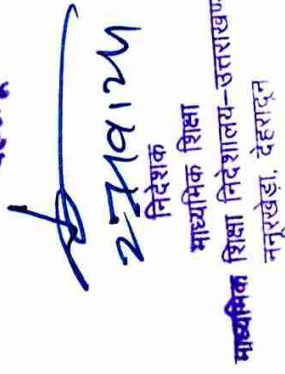 निदेशक
माध्यमिक शिक्षा
माध्यमिक शिक्षा निदेशालय–उत्तराखण्ड
ननूरखेड़ा, देहरादून